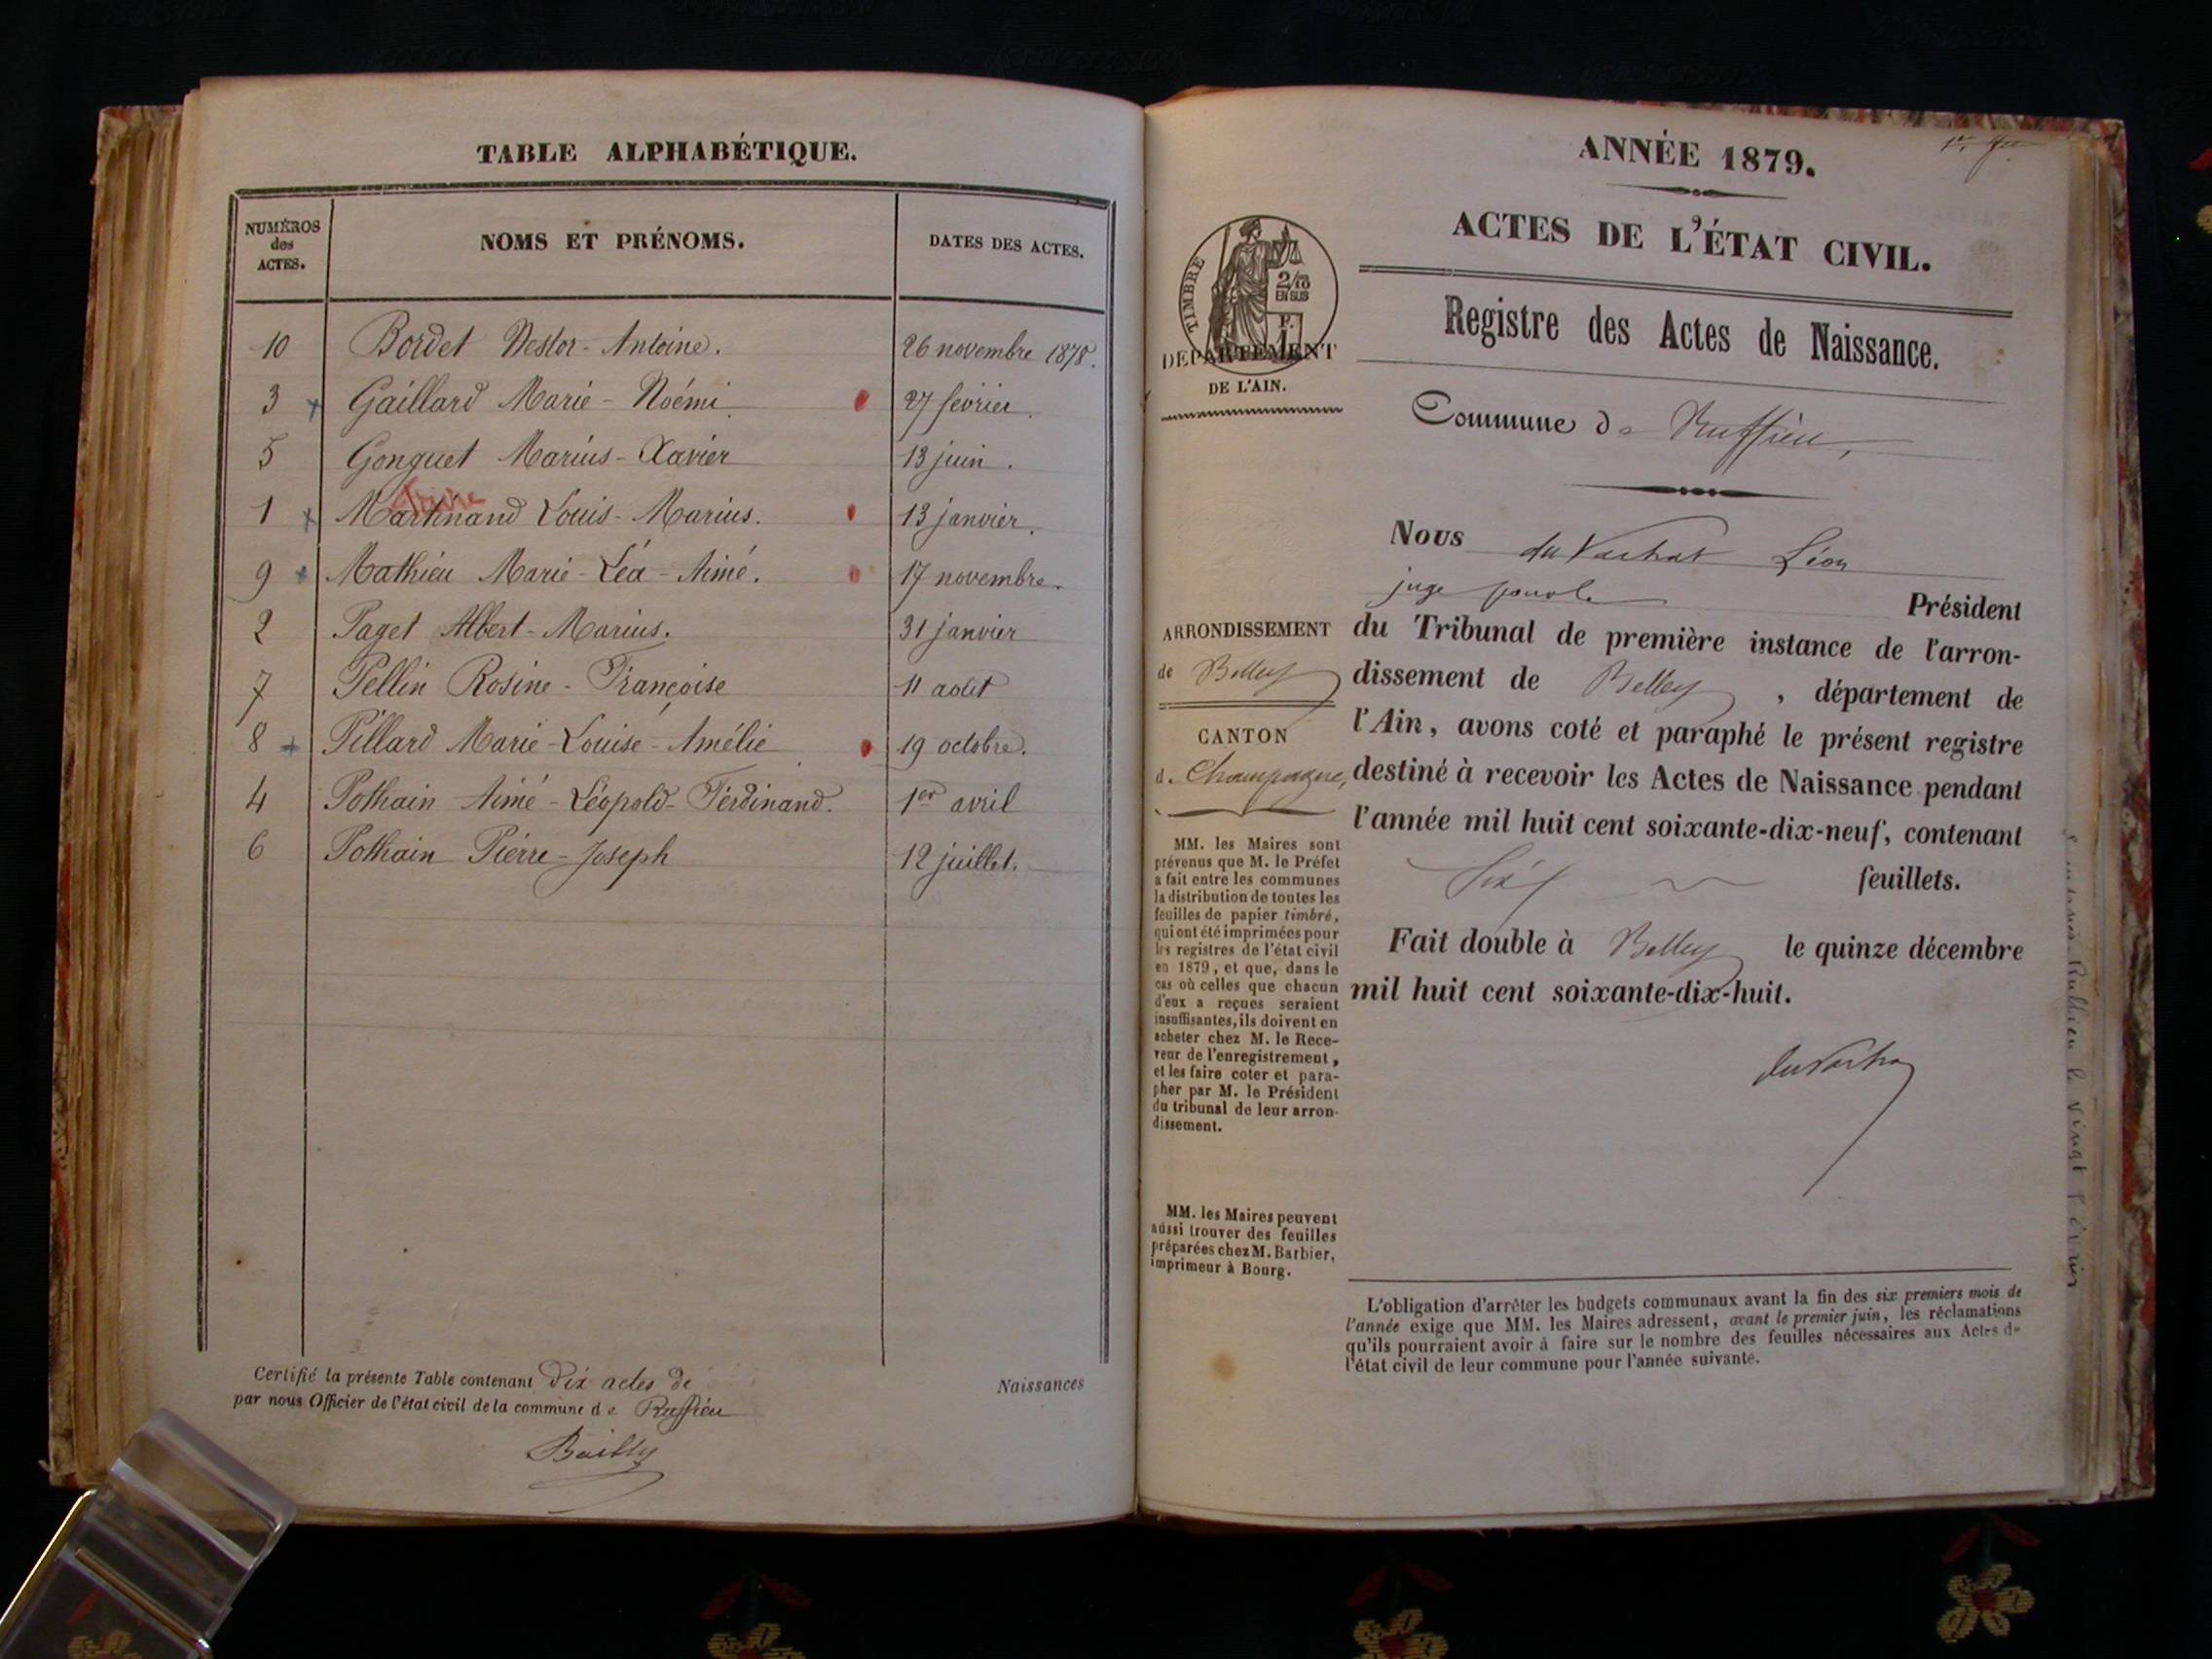 TABLE ALPHABÉTIQUE.
NUMÉROS des ACTES. NOMS ET PRÉNOMS. DATES DES ACTES.
10 Bordet Nestor-Antoine. 26 novembre 1878.
3 Gaillard Marie-Noémi 27 février.
5 Gonguet Marius-Xavier 13 juin.
1 Martinand Louis-Marius. 13 janvier.
9 Mathieu Marie-Léa-Aimé. 17 novembre.
2 Paget Albert-Marius. 31 janvier
7 Pellin Rosine-Françoise 11 août
8 Pillard Marie-Louise-Amélie 19 octobre.
4 Pothain Aimé-Léopold-Ferdinand. 1er avril
6 Pothain Pierre-Joseph 12 juillet.
Certifié la présente Table contenant dix actes de Naissances
par nous Officier de l'état civil de la commune de Ruffieu
Bailly
ANNÉE 1879.
ACTES DE L'ÉTAT CIVIL.
Registre des Actes de Naissance.
TIMBRE
2/10
EN SUS
DÉPARTEMENT
DE L'AIN.
Commune de Ruffieu,
Nous du Vachat Léon
juge
Président
du Tribunal de première instance de l'arron-
dissement de Belley, département de
l'Ain, avons coté et paraphé le présent registre
destiné à recevoir les Actes de Naissance pendant
l'année mil huit cent soixante-dix-neuf, contenant
Six feuillets.
Fait double à Belley le quinze décembre
mil huit cent soixante-dix-huit.
duVachat
ARRONDISSEMENT
de Belley
CANTON
de Champagne,
MM. les Maires sont
prévenus que M. le Préfet
a fait entre les communes
la distribution de toutes les
feuilles de papier timbré,
qui ont été imprimées pour
les registres de l'état civil
en 1879, et que, dans le
cas où celles que chacun
d'eux a reçues seraient
insuffisantes, ils doivent en
acheter chez M. le Rece-
veur de l'enregistrement,
et les faire coter et para-
pher par M. le Président
du tribunal de leur arron-
dissement.
MM. les Maires peuvent
aussi trouver des feuilles
préparées chez M. Barbier,
imprimeur à Bourg.
L'obligation d'arrêter les budgets communaux avant la fin des six premiers mois de
l'année exige que MM. les Maires adressent, avant le premier juin, les réclamations
qu'ils pourraient avoir à faire sur le nombre des feuilles nécessaires aux Actes de
l'état civil de leur commune pour l'année suivante.
Ruffieu le vingt février